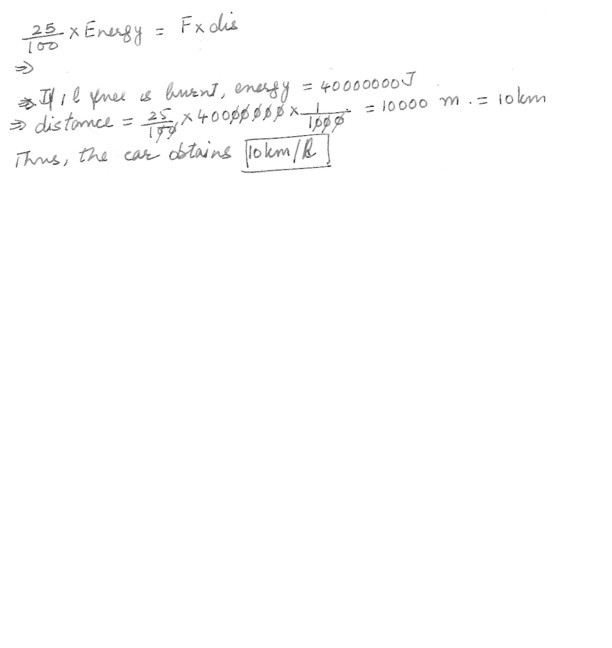 25/100 × Energy = F × dis
⇒
⇒ If 1 l fuel is burnt, energy = 40000000J
⇒ distance = 25/100 × 40000000 × 1/1000 = 10000 m. = 10km
Thus, the car obtains 10km/l